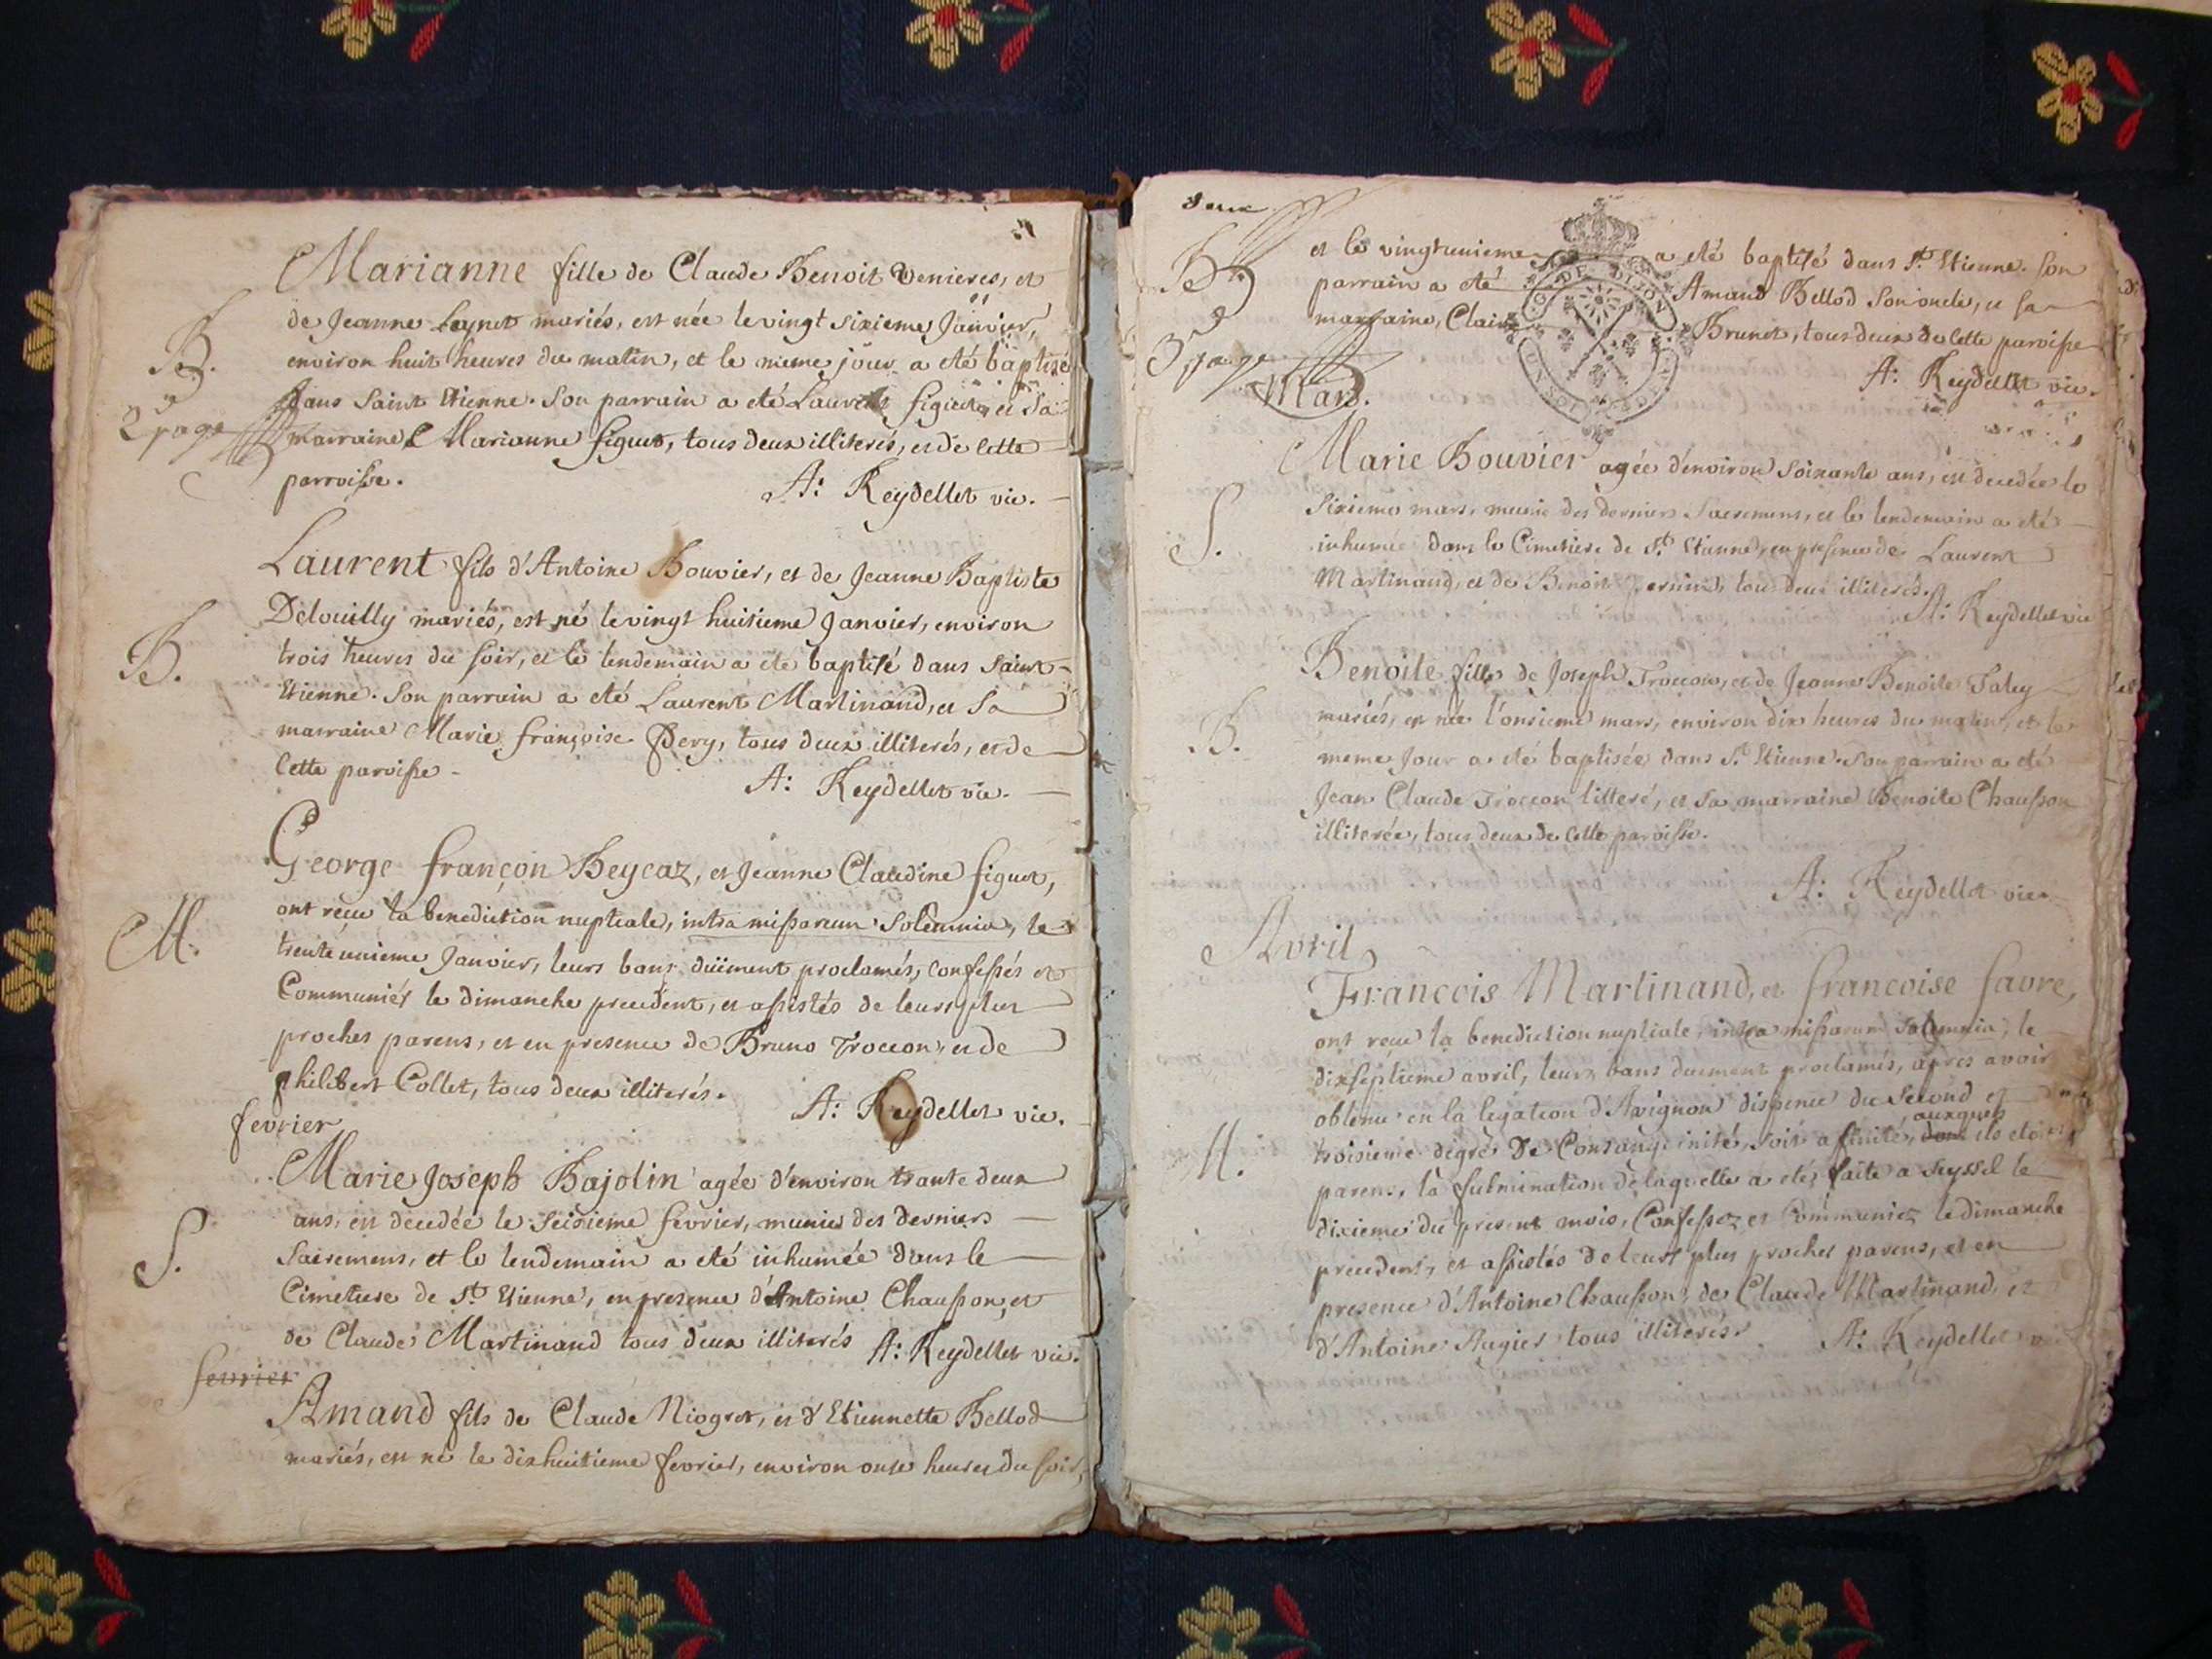 Marianne fille de Claude Benoit Venieres, et
de Jeanne Leynet mariés, est née le vingt sixieme Janvier,
B.
environ huit heures du matin, et le meme jour a eté baptizé
dans Saint Etienne. Son parrain a eté Laurent figuet, et Sa
2e page
marraine Marianne figuet, tous deux illiterés, et de cette
parroisse.
A: Reydellet vic.
Laurent fils d'Antoine Bouvier, et de Jeanne Baptiste
Delouilly mariés, est né le vingt huitieme Janvier, environ
B.
trois heures du soir, et le lendemain a eté baptisé dans Saint
Etienne. Son parrain a eté Laurent Martinand, et Sa
marraine Marie françoise Dery, tous deux illiterés, et de
Cette paroisse.
A: Reydellet vic.
George françon Beycaz, et Jeanne Claudine figuet,
ont reçu la benediction nuptiale, intra missarum Solemnia, le
M.
trente unieme Janvier, leurs bans düement proclamés, confessés et
Communiés le dimanche precedent, et assistés de leurs plus
proches parens, et en presence de Bruno Troccon, et de
philibert Collet, tous deux illiterés.
A: Reydellet vic.
fevrier
Marie Joseph Bajolin agée d'environ trante deux
ans, est decedée le Seisieme fevrier, munies des derniers
S.
Sacremens, et le lendemain a eté inhumée dans le
Cimetiere de St. Etienne, en presence d'Antoine Chausson, et
de Claude Martinand tous deux illiterés
A: Reydellet vic.
fevrier
Amand fils de Claude Niogret, et d'Etiennette Bellod
mariés, est né le dixhuitieme fevrier, environ onse heures du soir,
deux
et le vingtunieme a eté baptisé dans St. Etienne. Son
B
parrain a eté Amand Bellod son oncle, et sa
marraine, Claire Brunet, tous deux de Cette paroisse
3e page
A: Reydellet vic.
Mars.
G. DE DIJON
Marie Bouvier agée d'environ Soixante ans, est decedée le
Sixieme mars, munie des derniers Sacremens, et le lendemain a eté
S.
inhumée dans le Cimetiere de St. Etienne, en presence de Laurent
Martinand, et de Benoit tous deux illiterés.
A: Reydellet vic
Benoite fille de Joseph Troccon, et de Jeanne Benoite Taley
mariés, est née l'onsieme mars, environ dix heures du matin, et le
B.
meme Jour a eté baptisée dans St. Etienne. Son parrain a eté
Jean Claude Troccon litteré, et Sa marraine Benoite Chausson
illiterée, tous deux de Cette paroisse.
A: Reydellet vic.
Avril
François Martinand, et françoise favre,
ont reçu la benediction nuptiale intra missarum Solemnia, le
dixseptieme avril, leurs bans duement proclamés, apres avoir
obtenu en la legation d'Avignon dispence du Second et
auxquels
M.
troisieme degrés de Consanguinité, soit afinité, dont ils etoient
parens, la fulmination de laquelle a eté faite a Seyssel le
dixieme du present mois, Confessez et Communiez le dimanche
precedent, et assistés de leurs plus proches parens, et en
presence d'Antoine Chausson, de Claude Martinand, et
d'Antoine Augier tous illiterés.
A: Reydellet vic